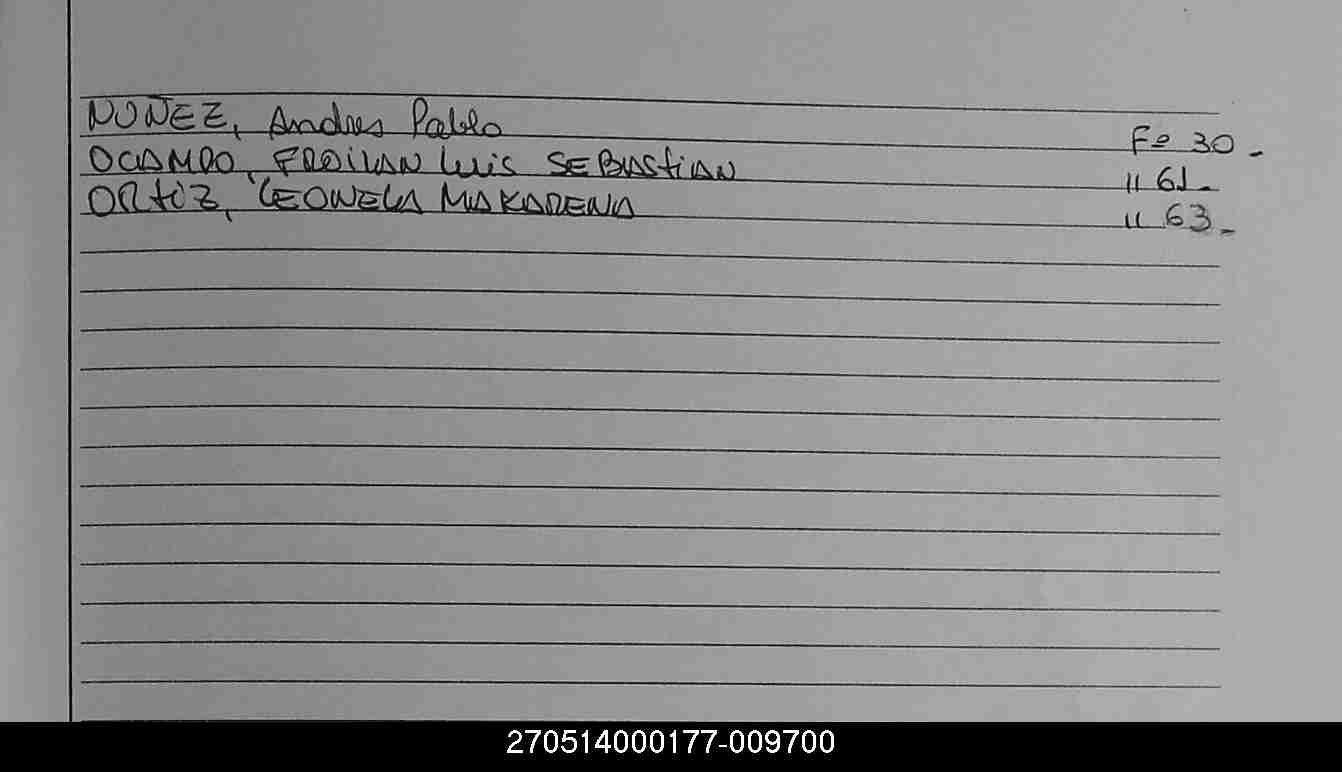 NUÑEZ, Andres Pablo Fº 30.-
OCAMPO, FROILAN Luis SEBAStiAN " 61.-
ORtiZ, LEONELA MAKARENA " 63.-
270514000177-009700